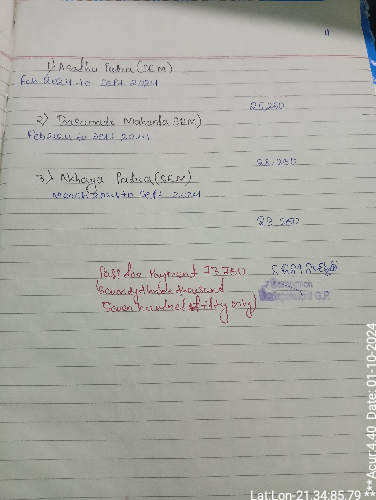 11
1) Madhu Patra (SEM)
Feb 2024 to Sept 2024
25,250
2) Mahanta SEM)
Feb 2024 to Sept 2024
25,250
3) Akhaya Patra (SEM)
March to Sept 2024
23,250
Pass for Payment 73,750
Seventy three thousand
Seven hundred fifty only)
G.P.
Lat:Lon-21.34:85.79
***Acur:4.40 Date: 01-10-2024